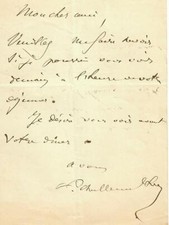 Mon cher ami,
Veuillez me faire savoir
si je pourrai vous voir
demain à l'heure de votre
déjeuner.
Je désire vous voir avant
votre dîner.
à vous